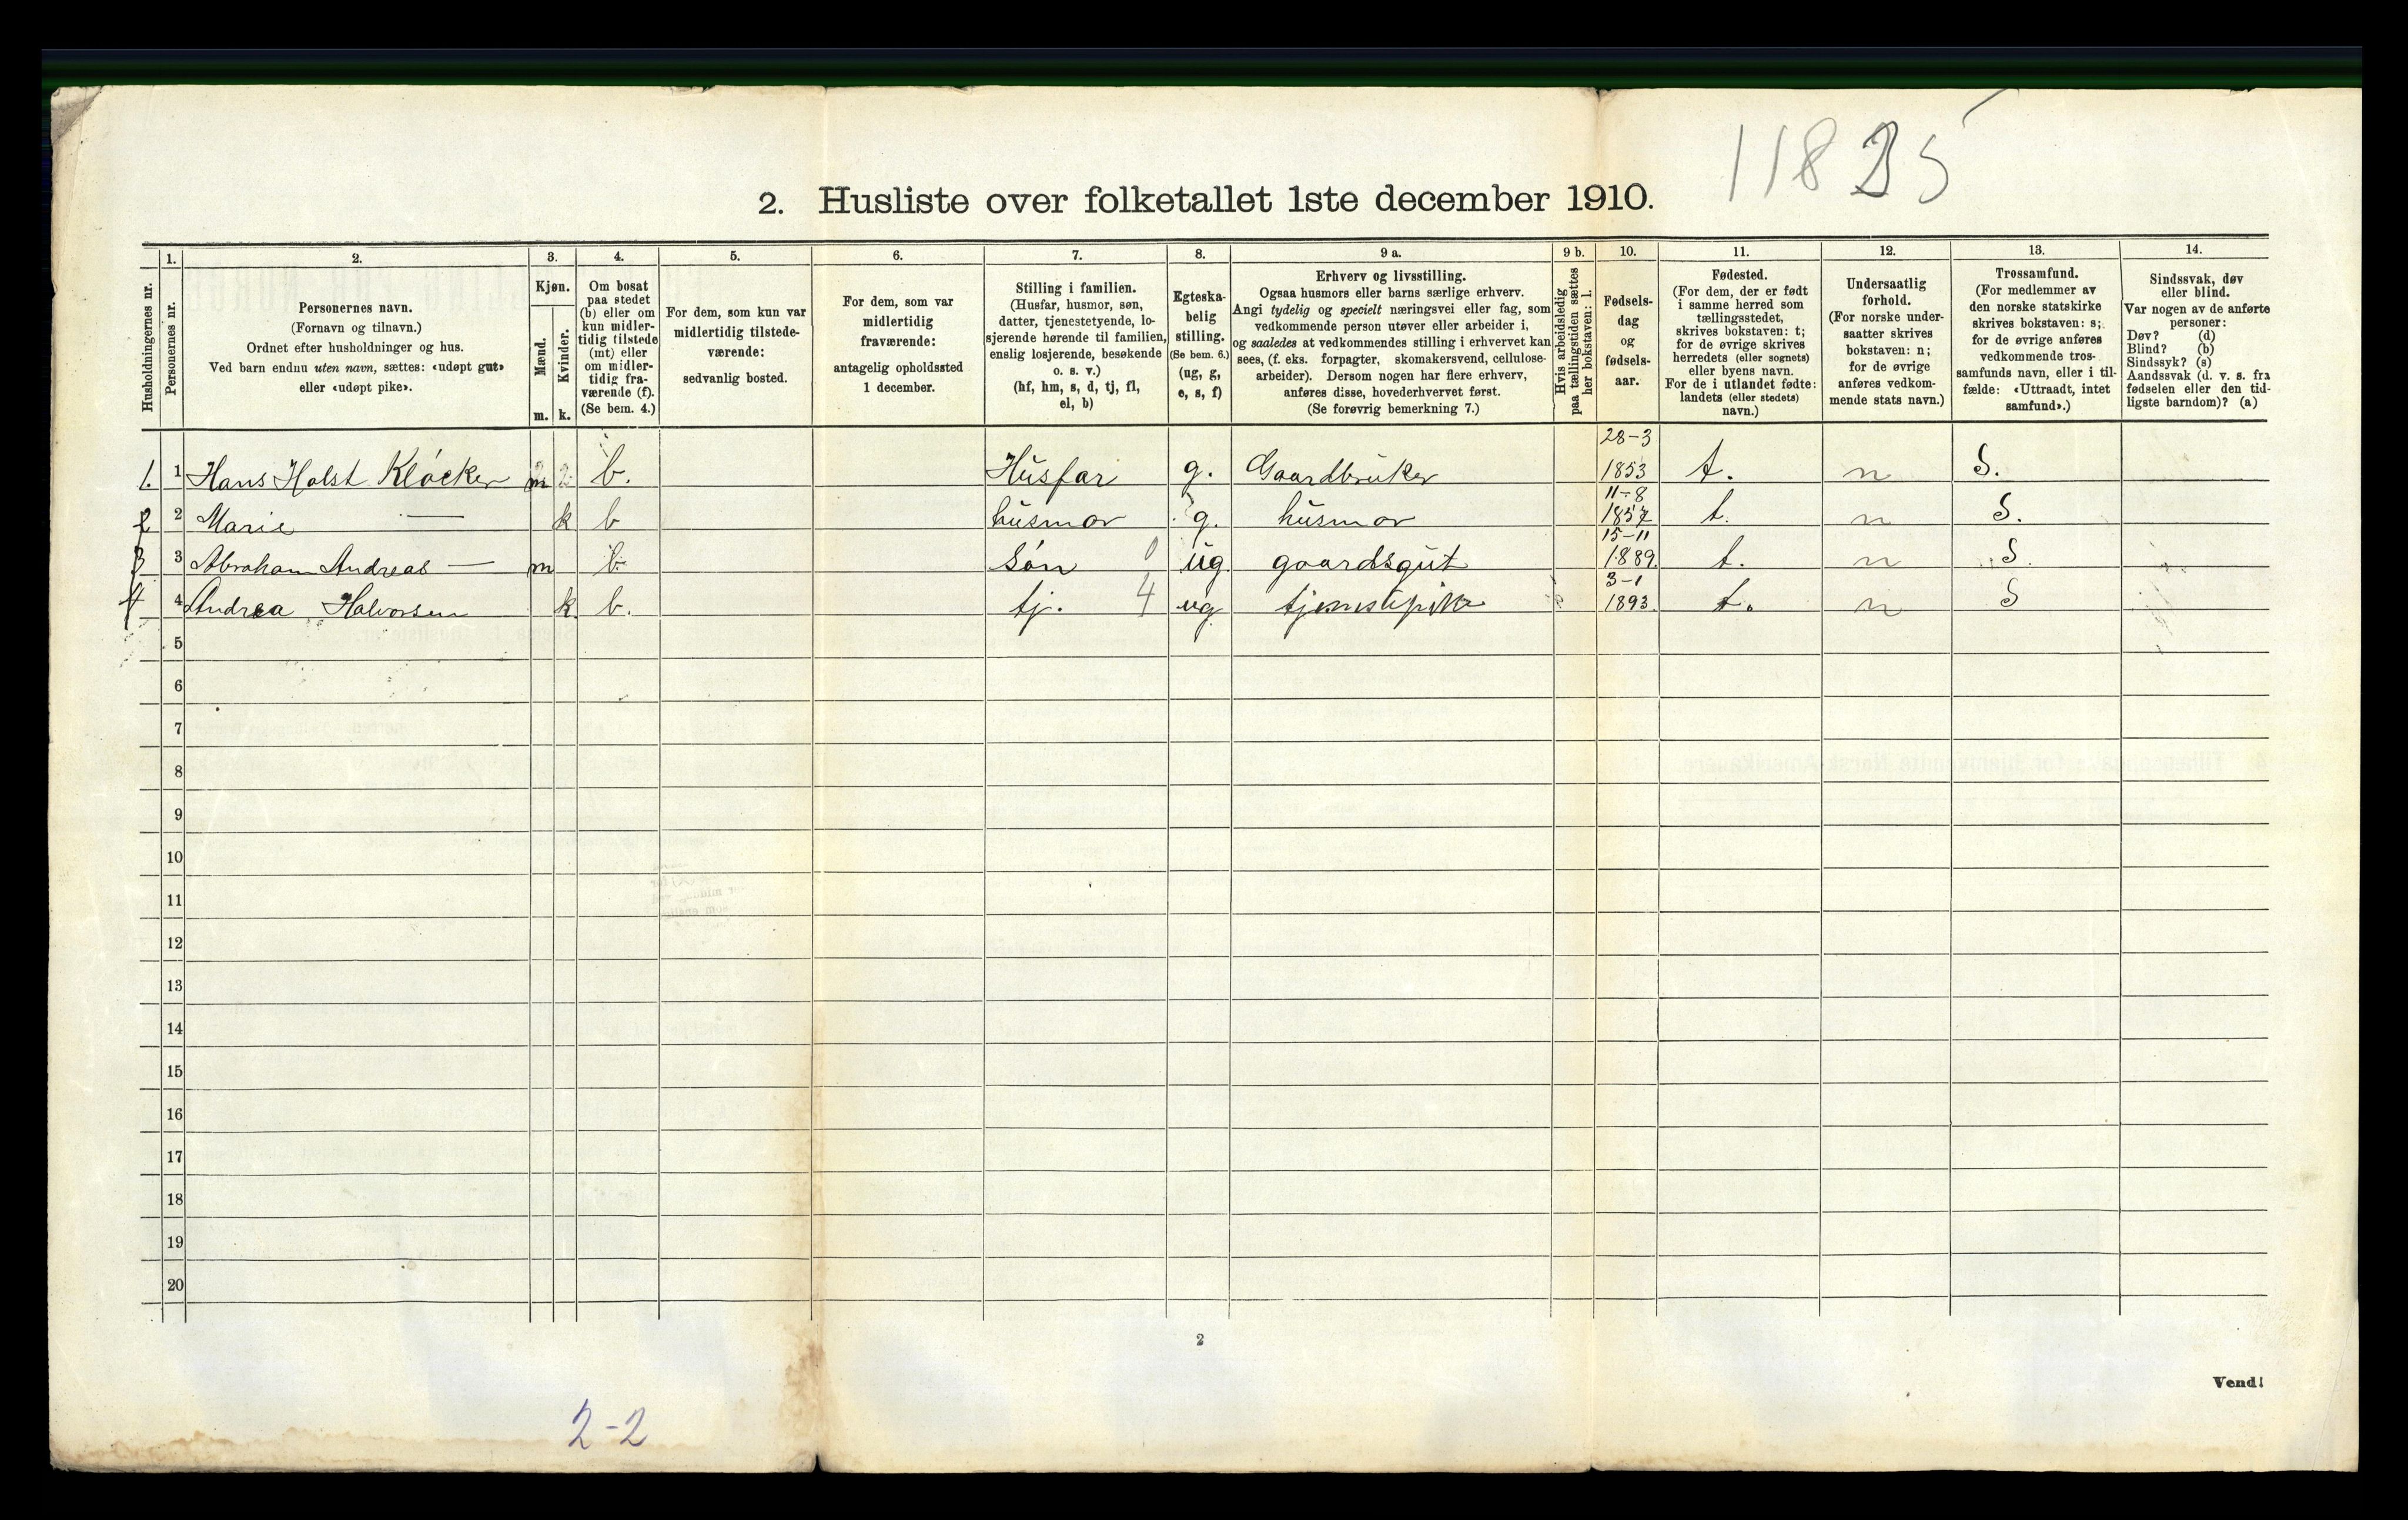 11825
2. Husliste over folketallet 1ste december 1910.
1. 2. 3. 4. 5. 6. 7. 8. 9 a. 9 b. 10. 11. 12. 13. 14.
Husholdningernes nr.
Personernes nr.
Personernes navn.
(Fornavn og tilnavn.)
Ordnet efter husholdninger og hus.
Ved barn endnu uten navn, sættes: «udøpt gut»
eller «udøpt pike».
Kjøn.
Mænd.
Kvinder.
m. k.
Om bosat
paa stedet
(b) eller om
kun midler-
tidig tilstede
(mt) eller
om midler-
tidig fra-
værende (f).
(Se bem. 4.)
For dem, som kun var
midlertidig tilstede-
værende:
sedvanlig bosted.
For dem, som var
midlertidig
fraværende:
antagelig opholdssted
1 december.
Stilling i familien.
(Husfar, husmor, søn,
datter, tjenestetyende, lo-
sjerende hørende til familien,
enslig losjerende, besøkende
o. s. v.)
(hf, hm, s, d, tj, fl,
el, b)
Egteska-
belig
stilling.
(Se bem. 6.)
(ug, g,
e, s, f)
Erhverv og livsstilling.
Ogsaa husmors eller barns særlige erhverv.
Angi tydelig og specielt næringsvei eller fag, som
vedkommende person utøver eller arbeider i,
og saaledes at vedkommendes stilling i erhvervet kan
sees, (f. eks. forpagter, skomakersvend, cellulose-
arbeider). Dersom nogen har flere erhverv,
anføres disse, hovederhvervet først.
(Se forøvrig bemerkning 7.)
Hvis arbeidsledig
paa tællingstiden sættes
her bokstaven: l.
Fødsels-
dag
og
fødsels-
aar.
Fødested.
(For dem, der er født
i samme herred som
tællingsstedet,
skrives bokstaven: t;
for de øvrige skrives
herredets (eller sognets)
eller byens navn.
For de i utlandet fødte:
landets (eller stedets)
navn.)
Undersaatlig
forhold.
(For norske under-
saatter skrives
bokstaven: n;
for de øvrige
anføres vedkom-
mende stats navn.)
Trossamfund.
(For medlemmer av
den norske statskirke
skrives bokstaven: s;
for de øvrige anføres
vedkommende tros-
samfunds navn, eller i til-
fælde: «Uttraadt, intet
samfund».)
Sindssvak, døv
eller blind.
Var nogen av de anførte
personer:
Døv? (d)
Blind? (b)
Sindssyk? (s)
Aandssvak (d. v. s. fra
fødselen eller den tid-
ligste barndom)? (a)
1. 1 Hans Holst Kløcker m b. Husfar g. Gaardbruker 28-3 1853 t. n S.
2 2 Marie — k b husmor g. husmor 11-8 1857 t. n S.
3 3 Abraham Andreas — m b. Søn 0 ug gaardsgut 15-11 1889. t. n S
4 4 Andrea Halvorsen k. b. tj. 4 ug tjenestepike 3-1 1893. t. n S
5
6
7
8
9
10
11
12
13
14
15
16
17
18
19
20
2
Vend!
2-2